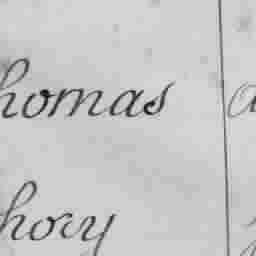 homas a
hory